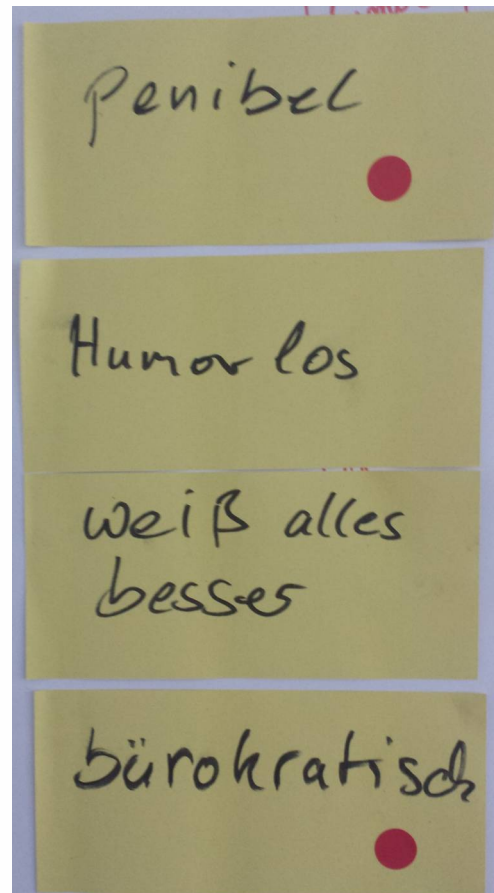 penibel
Humorlos
weiß alles
besser
bürokratisch